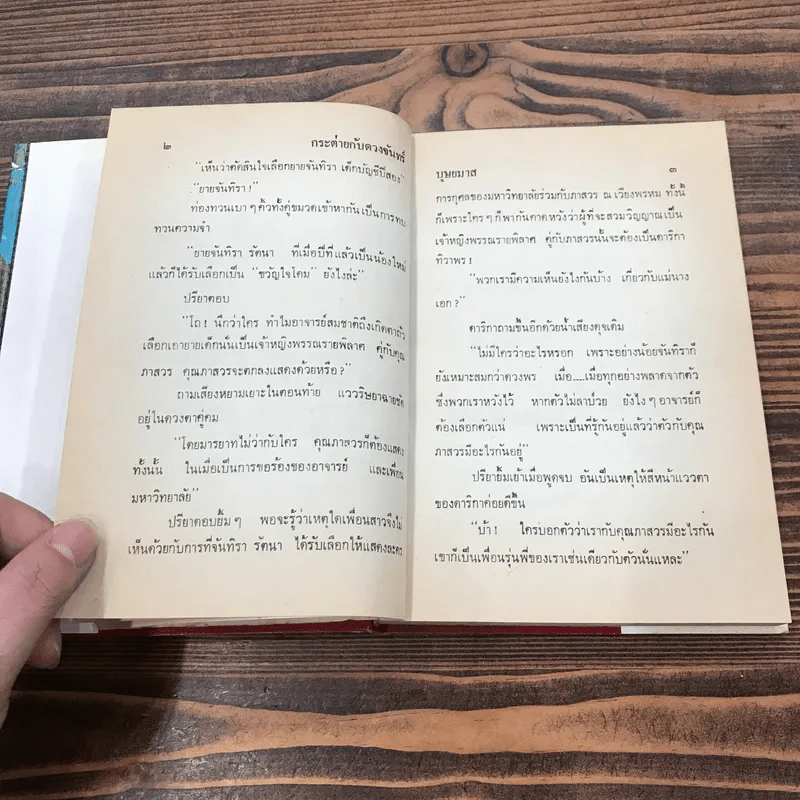 ๒ กระต่ายกับดวงจันทร์
“เห็นว่าตัดสินใจเลือกยายจันทิรา เด็กบัญชีปีสอง”
“ยายจันทิรา !”
ท่องทวนเบา ๆ คิ้วทั้งคู่ขมวดเข้าหากัน เป็นการทบ
ทวนความจำ
“ยายจันทิรา รัตนา ที่เมื่อปีที่แล้วเป็นน้องใหม่
แล้วก็ได้รับเลือกเป็น “ขวัญใจโดม” ยังไงล่ะ”
ปรียาตอบ
“โถ ! นึกว่าใคร ทำไมอาจารย์สมชาติถึงเกิดตาถั่ว
เลือกเอายายเด็กนั่นเป็นเจ้าหญิงพรรณรายพิลาศ คู่กับคุณ
ภาสวร คุณภาสวรจะตกลงแสดงด้วยหรือ ?”
ถามเสียงหยามเยาะในตอนท้าย แววริษยาฉายชัด
อยู่ในดวงตาคู่คม
“โดยมารยาทไม่ว่ากับใคร คุณภาสวรก็ต้องแสดง
ทั้งนั้น ในเมื่อเป็นการขอร้องของอาจารย์ และเพื่อน
มหาวิทยาลัย”
ปรียาตอบยิ้ม ๆ พอจะรู้ว่าเหตุใดเพื่อนสาวจึงไม่
เห็นด้วยกับการที่จันทิรา รัตนา ได้รับเลือกให้แสดงละคร
บุษยมาส ๓
การกุศลของมหาวิทยาลัยร่วมกับภาสวร ณ เวียงพรหม ทั้งนี้
ก็เพราะใคร ๆ ก็พากันคาดหวังว่าผู้ที่จะสวมวิญญาณเป็น
เจ้าหญิงพรรณรายพิลาศ คู่กับภาสวรนั้นจะต้องเป็นดาริกา
ทิวาพร !
“พวกเรามีความเห็นยังไงกันบ้าง เกี่ยวกับแม่นาง
เอก ?”
ดาริกาถามขึ้นอีกด้วยน้ำเสียงดุจเดิม
“ไม่มีใครว่าอะไรหรอก เพราะอย่างน้อยจันทิราก็
ยังเหมาะสมกว่าดวงพร เมื่อ....เมื่อทุกอย่างพลาดจากตัว
ซึ่งพวกเราหวังไว้ หากตัวไม่ลาป่วย ยังไง ๆ อาจารย์ก็
ต้องเลือกตัวแน่ เพราะเป็นที่รู้กันอยู่แล้วว่าตัวกับคุณ
ภาสวรมีอะไรกันอยู่”
ปรียายิ้มเย้าเมื่อพูดจบ อันเป็นเหตุให้สีหน้าแววตา
ของดาริกาค่อยดีขึ้น
“บ้า ! ใครบอกตัวว่าเรากับคุณภาสวรมีอะไรกัน
เขาก็เป็นเพื่อนรุ่นพี่ของเราเช่นเดียวกับตัวนั่นแหละ”